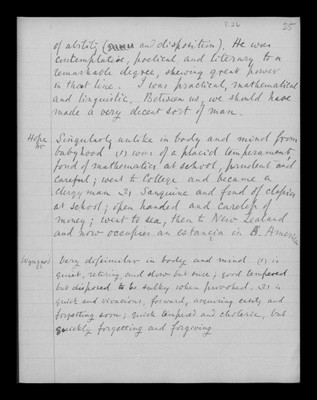 25
of ability ( and disposition). He was
contemplative, poetical and literary to a
remarkable degree, shewing great power
in that line. I was practical, mathematical
and linguistic. Between us, we should have
made a very decent sort of man.
Hope
Singularly unlike in body and mind from
babyhood (1) was of a placid temperament,
fond of mathematics at school, prudent and
careful; went to College and became a
clergyman 2) Sanguine and fond of classics
at school; open handed and careless of
money; went to sea, then to New Zealand
and now occupies an estancia in S. America
Very dissimilar in body and mind (1) is
quiet, retiring and slow but sure; good tempered
but disposed to be sulky when provoked. 2) is
quick and vivacious, forward, acquiring easily and
forgetting soon; quick tempered and choleric, but
quickly forgetting and forgiving